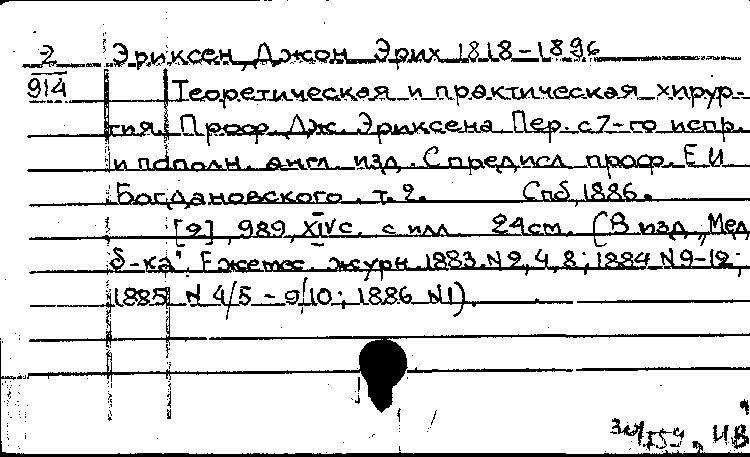 2 Эриксен, Джон Эрих 1818-1896
914 Теоретическая и практическая хирур-
гия. Проф. Дж. Эриксена. Пер. с 7-го испр.
и дополн. англ. изд. С предисл. проф. Е.И.
Богдановского. т. 2. Спб, 1886.
[2], 989, XIV с. с илл. 24 см. (В изд. "Мед.
б-ка". Ежемес. журн. 1883. N 2, 4, 8; 1884 N 9-12;
1885 N 4/5 - 9/10; 1886 N 1).